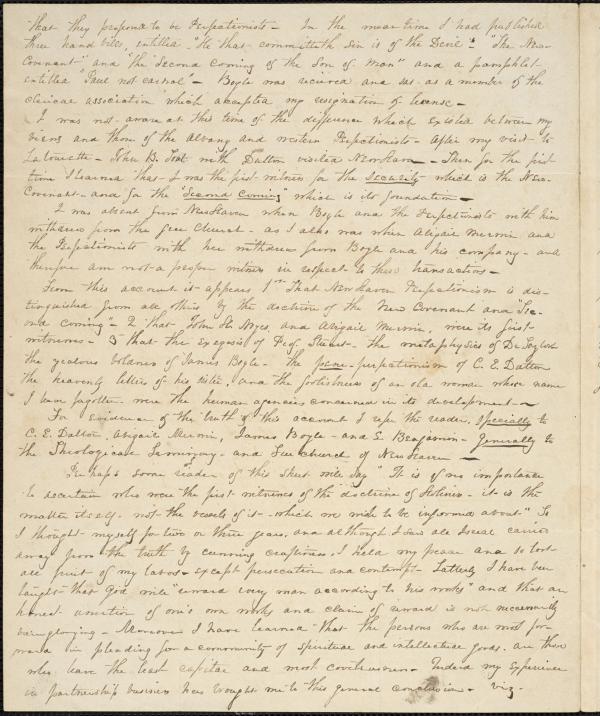 that they professed to be Perfectionists — In the mean time I had published
three hand bills, entitled "He that committeth Sin is of the Devil" "The New
Covenant" and "the Second Coming of the Son of Man" and a pamphlet
entitled "Paul not carnal" — Boyle was received and sat as a member of the
clerical association which accepted my resignation of license —
I was not aware at this time of the difference which existed between my
views and those of the Albany and western Perfectionists — After my visit to
Latourette — John B. Foot with Dutton visited New Haven — Then for the first
time I learned that I was the first witness for the security which is the New
Covenant — and for the "Second Coming" which is its foundation —
I was absent from New Haven when Boyle and the Perfectionists with him
withdrew from the free Church — as I also was when Abigail Merwin and
the Perfectionists with her withdrew from Boyle and his company — and
therefore am not a proper witness in respect to those transactions —
From this account it appears 1st That New Haven Perfectionism is dis-
tinguished from all others by the doctrine of the New Covenant and "Sec-
ond coming" — 2 that John H. Noyes, and Abigail Merwin, were its first
witnesses — 3 that the exegesis of Prof. Stuart — the metaphysics of Dr Taylor
the zealous boldness of James Boyle — the perfectionism of C. E. Dutton
the heavenly letters of his sister, and the foolishness of an old woman whose name
I have forgotten were the human agencies concerned in its development —
For evidence of the truth of this account I refer the reader, specially to
C. E. Dutton, Abigail Merwin, James Boyle — and E. Benjamin — generally to
the Theological Seminary — and Free Church of New Haven —
Perhaps some reader of this sheet will say "It is of no importance
to ascertain who were the first witnesses of the doctrine of holiness — it is the
matter itself — not the vessels of it — which we wish to be informed about" So
I thought myself for two or three years, and although I saw all Israel carried
away from the truth by cunning craftiness, I held my peace and so lost
all fruit of my labors except persecution and contempt — Latterly I have been
taught that God will "reward every man according to his works" and that an
honest assertion of one's own works and claim of reward is not necessarily
vainglorying — Moreover I have learned that the persons who are most for-
ward in pleading for a community of spiritual and intellectual goods, are those
who have the least capital and most covetousness — Indeed my experience
in partnership business has brought me to this general conclusion — viz.